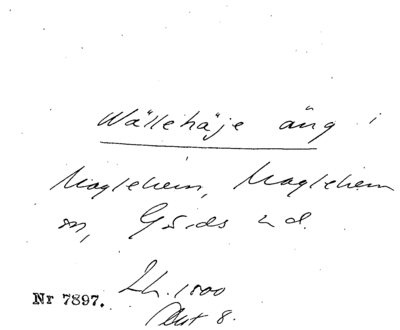 Wällehäje äng i
Maglehem, Maglehem
sn, Gärds hd.
Lh. 1500
Nr 7897.
Akt 8.